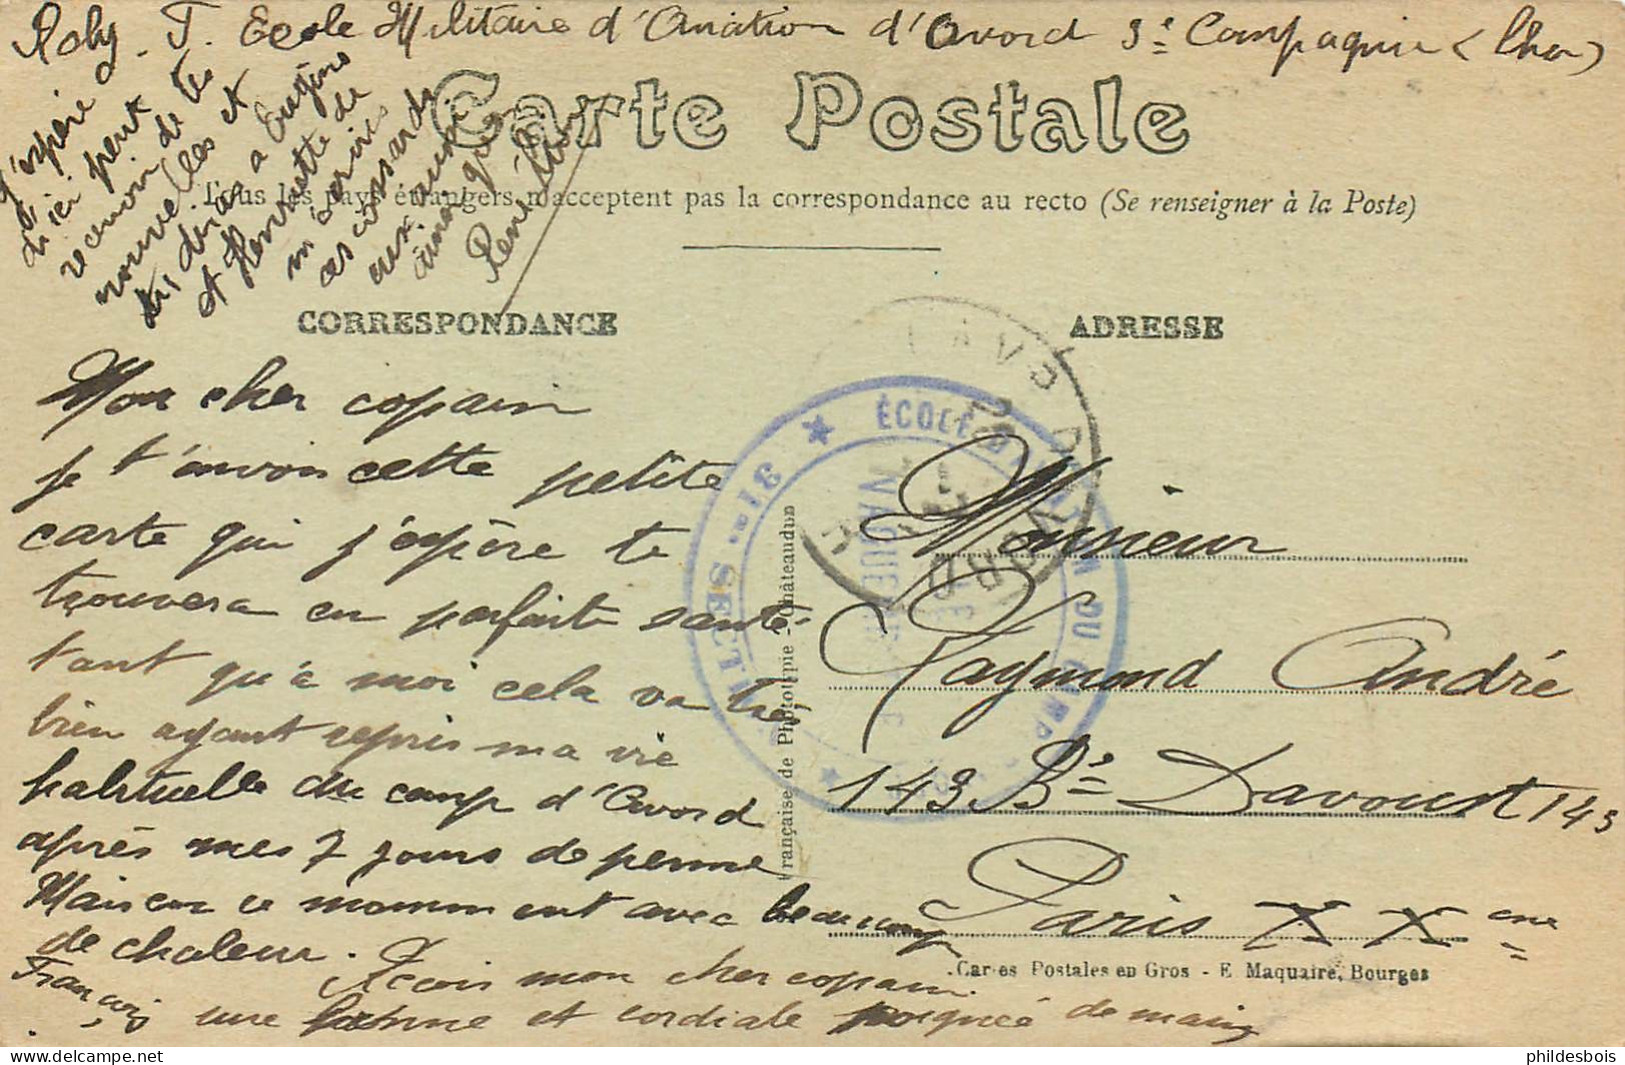 Roby. T. Ecole Militaire d'Aviation d'Avord 3e Compagnie (Cher)
Carte Postale
Tous les pays étrangers n'acceptent pas la correspondance au recto (Se renseigner à la Poste)
j'espère
d'ici peut
recevoir de tes
nouvelles et
tu diras a Eugène
et Henriette de
m'écrire
aussi
ainsi que
René
CORRESPONDANCE
ADRESSE
Mon cher copain
je t'envois cette petite
carte qui j'espère te
trouvera en parfaite santé
tant qu'à moi cela va très
bien ayant repris ma vie
habituelle du camp d'Avord
après mes 7 jours de perme
Mais en ce momment avec beaucoup
de chaleur.
Reçois mon cher copain
une bonne et cordiale poignée de main
François
Monsieur
Raymond André
143 Bd Davoust 143
Paris XXeme
Française de Phototypie - Châteaudun
Cartes Postales en Gros - E. Maquaire, Bourges
ÉCOLE D'AVIATION DU CAMP
31me SECTION
AVORD
phildesbois